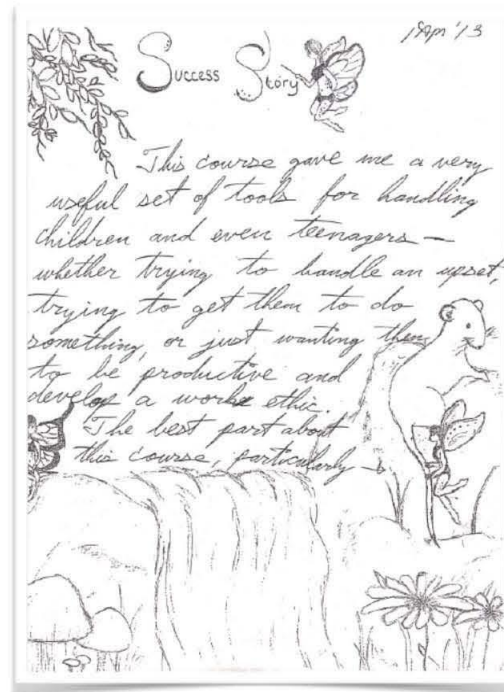 1 Apr '13
Success Story
This course gave me a very
useful set of tools for handling
children and even teenagers —
whether trying to handle an upset,
trying to get them to do
something, or just wanting them
to be productive and
develop a work ethic.
The best part about
this course, particularly →